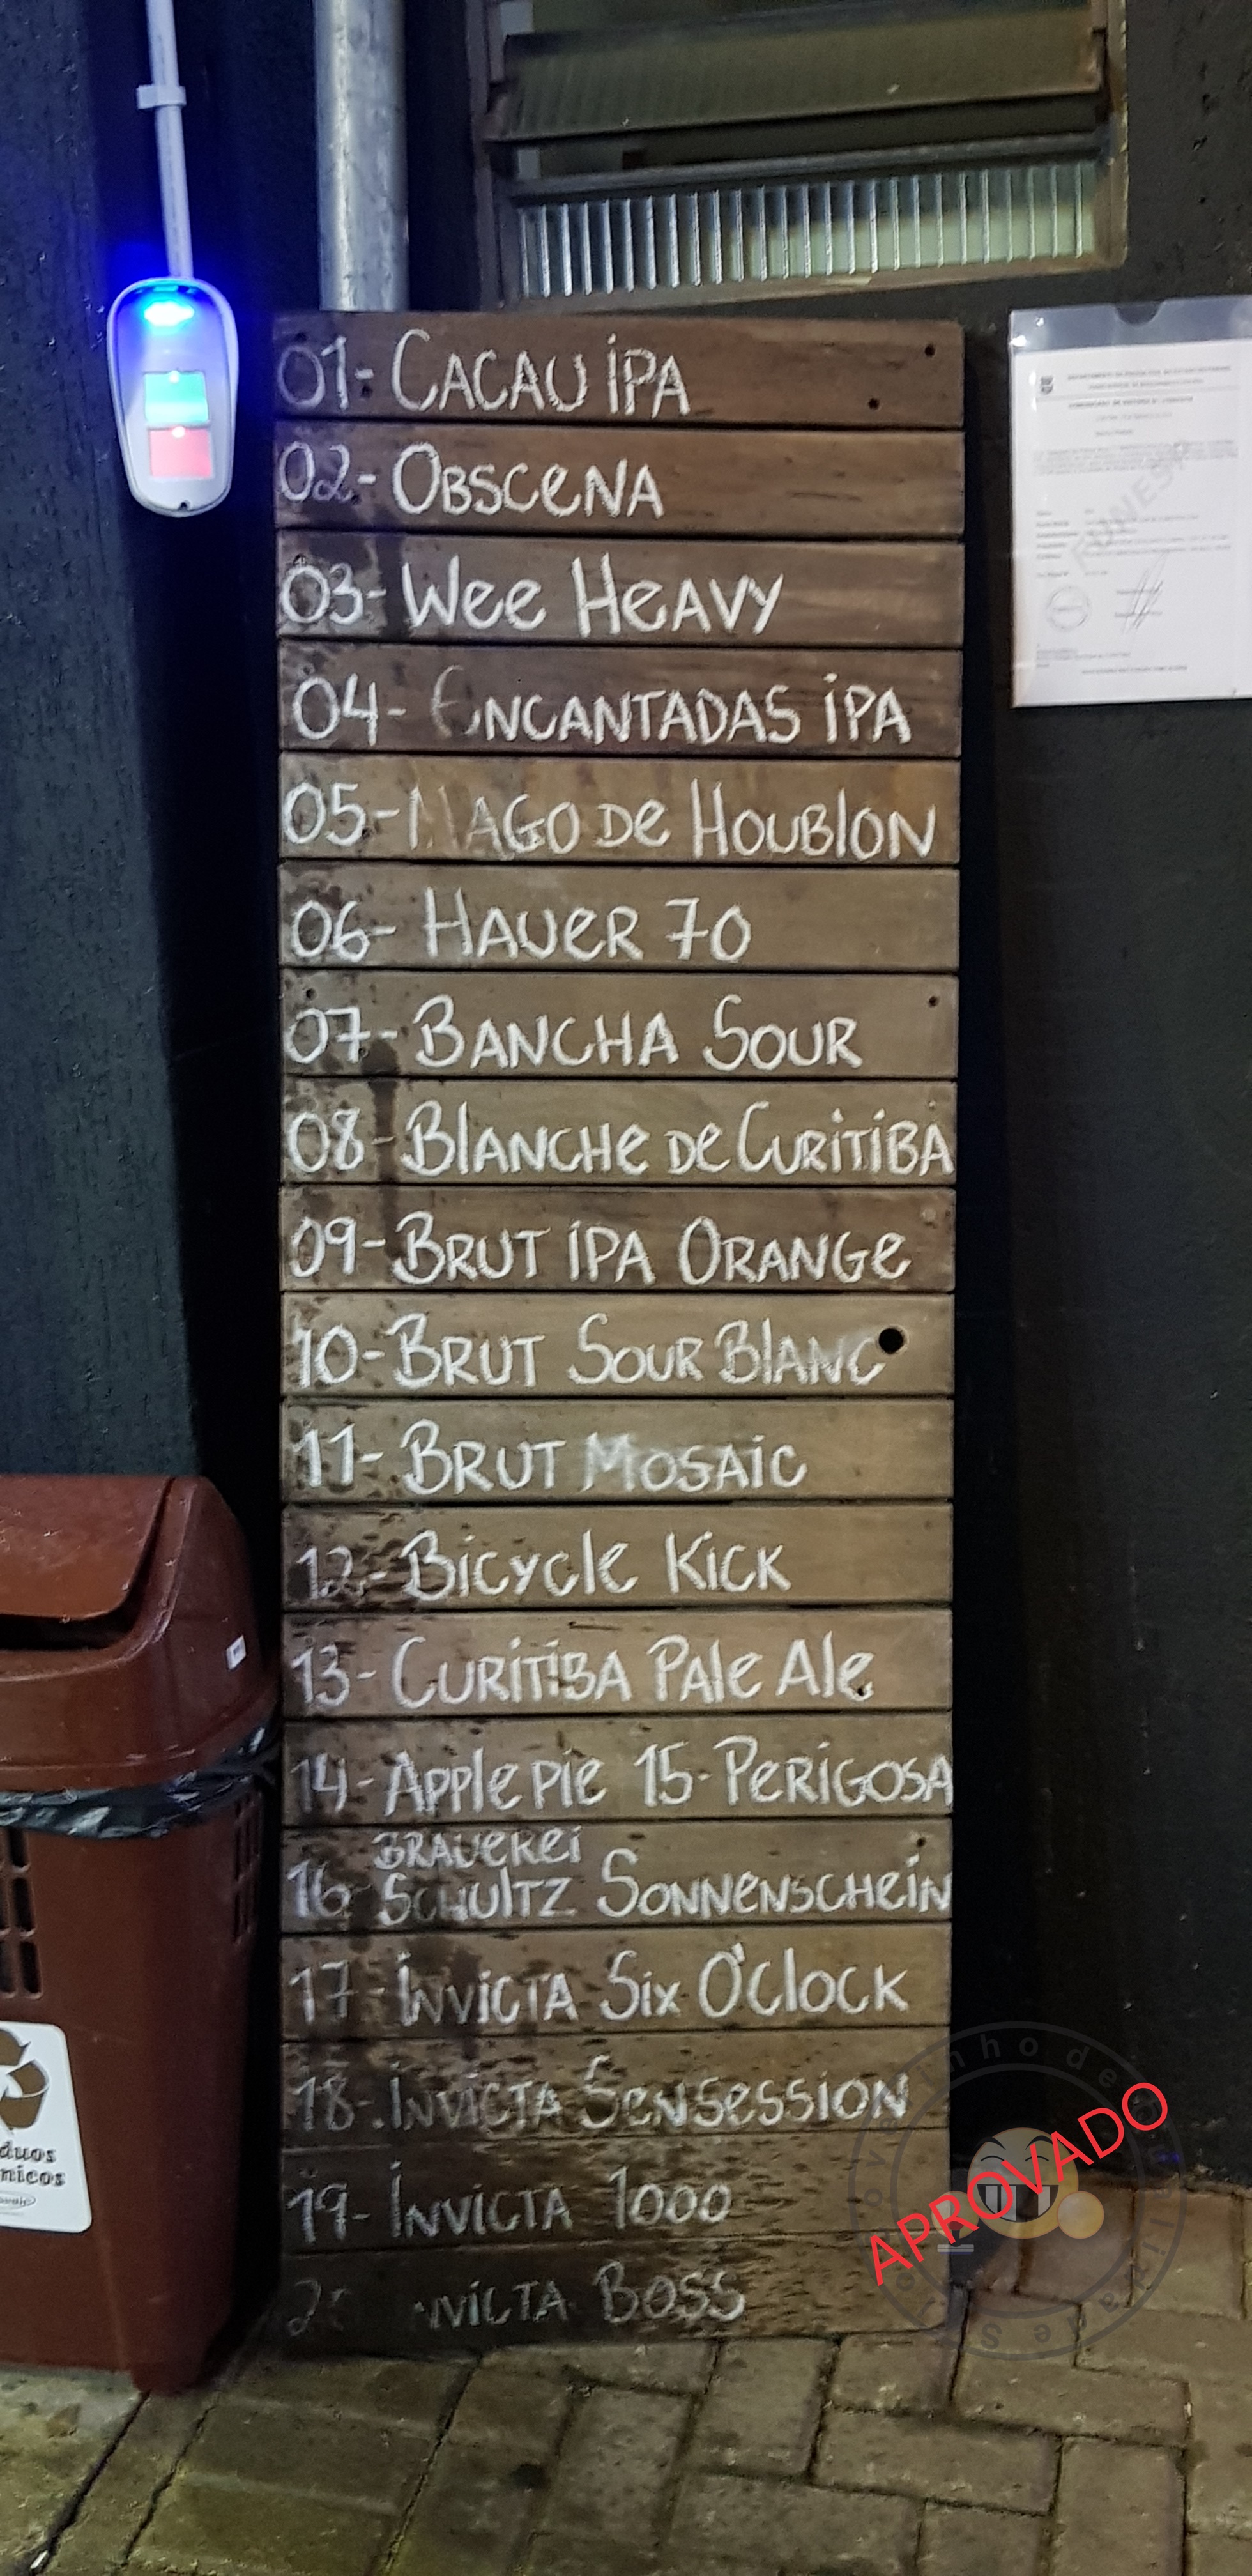 01- CACAU IPA
02- OBSCENA
03- WEE HEAVY
04- ENCANTADAS IPA
05- MAGO DE HOUBLON
06- HAUER 70
07- BANCHA SOUR
08- BLANCHE DE CURITIBA
09- BRUT IPA ORANGE
10- BRUT SOUR BLANC
11- BRUT MOSAIC
12- BICYCLE KICK
13- CURITIBA PALE ALE
14- APPLE PIE 15- PERIGOSA
BRAUEREI
16- SCHULTZ SONNENSCHEIN
17- INVICTA SIX O'CLOCK
18- INVICTA SENSESSION
19- INVICTA 1000
INVICTA BOSS
FUNESP
APROVADO